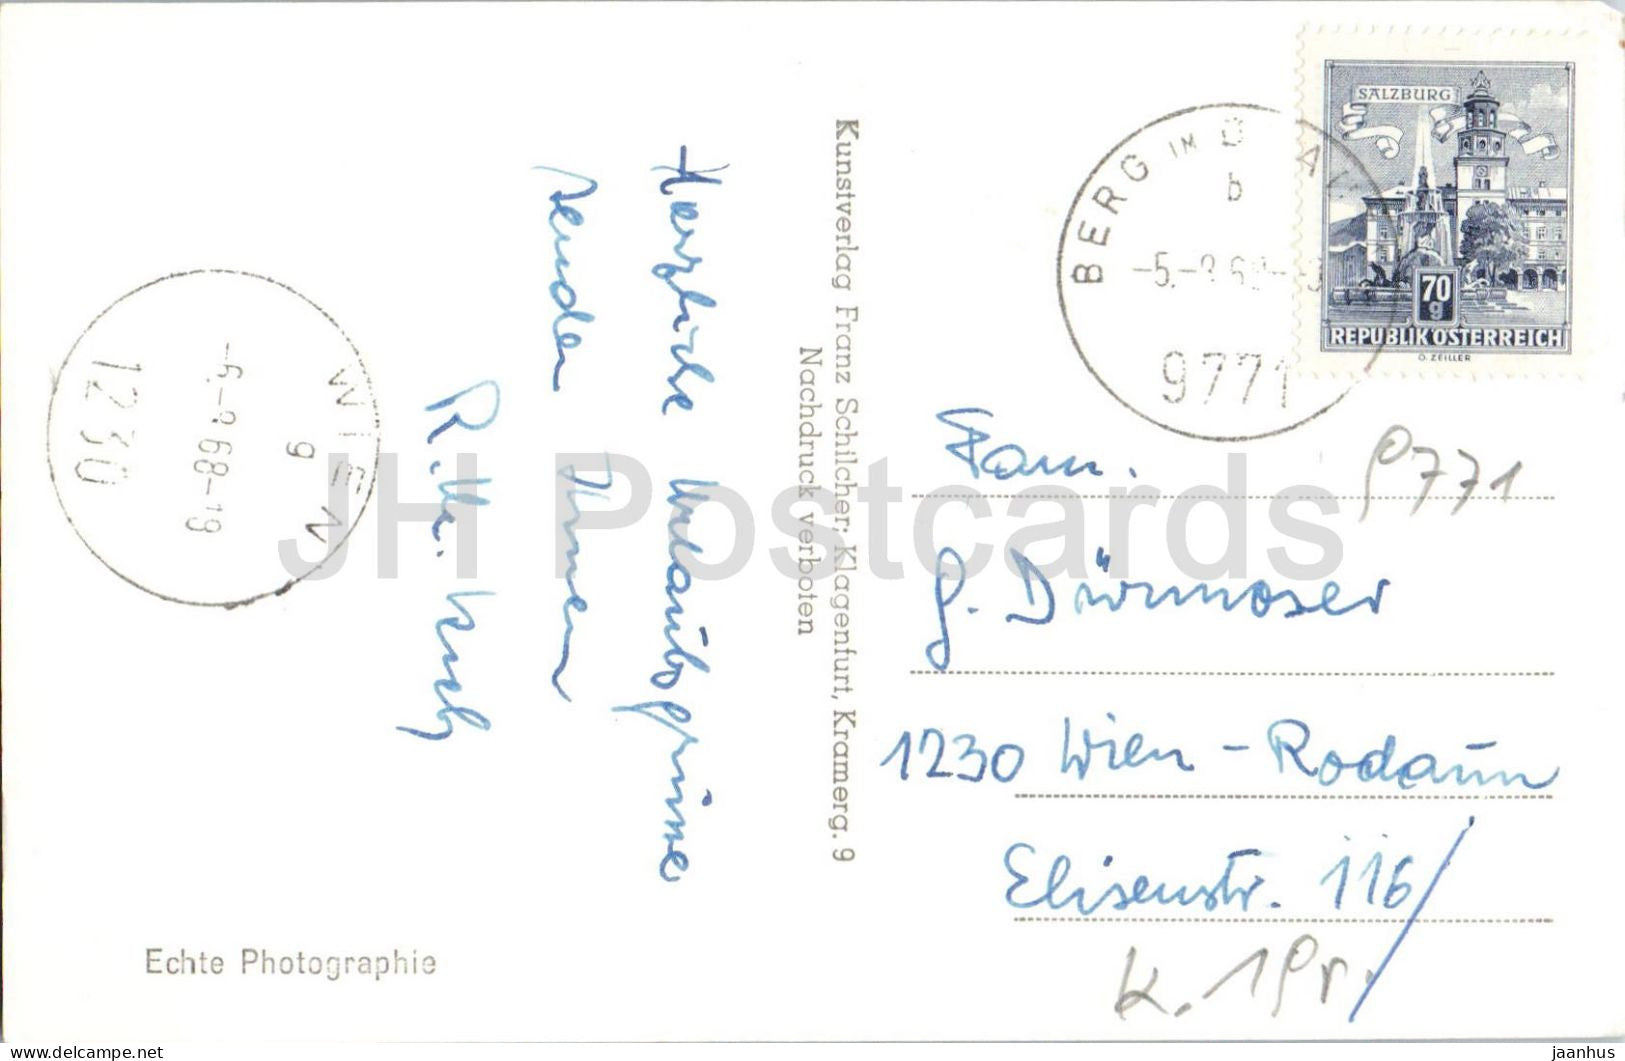 Herzliche Urlaubsgrüsse
senden Ihnen
Kunstverlag Franz Schilcher; Klagenfurt, Kramerg. 9
Nachdruck verboten
Echte Photographie
WIEN
9
-6.-8.68-19
1230
BERG IM DRAU
b
-5.-8.68-
9771
SALZBURG
70
g
REPUBLIK ÖSTERREICH
O. ZEILLER
Fam.
9771
G. Dürmoser
1230 Wien - Rodaun
Elisenstr. 116/
JH Postcards
delcampe.net
jaanhus